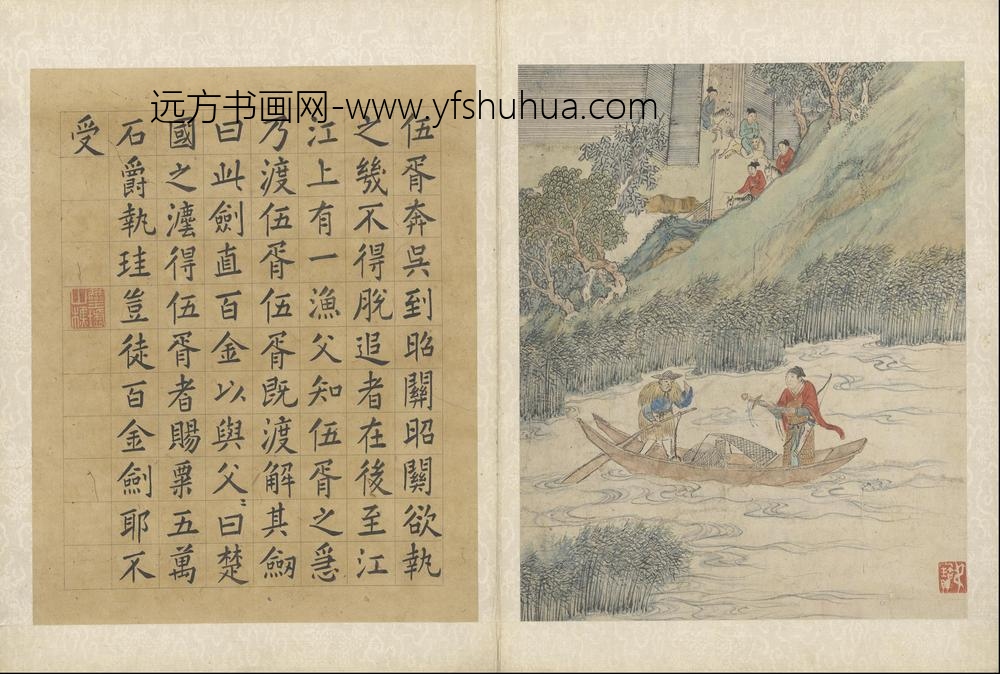 远方书画网-www.yfshuhua.com
伍胥奔吳到昭關昭關欲執
之幾不得脫追者在後至江
江上有一漁父知伍胥之急
乃渡伍胥伍胥既渡解其劒
曰此劍直百金以與父〻曰楚
國之灋得伍胥者賜粟五萬
石爵執珪豈徒百金劍耶不
受